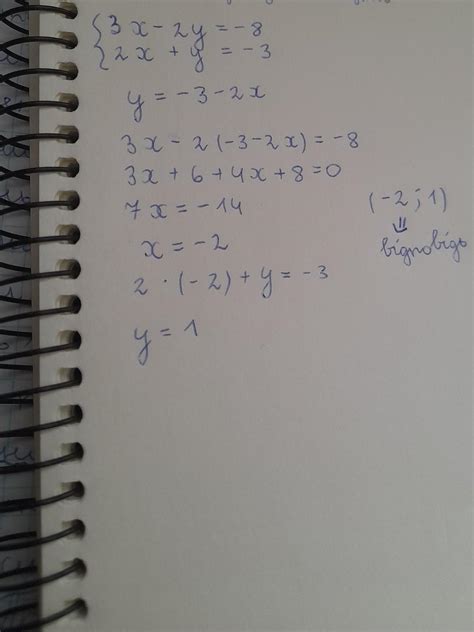 {3x - 2y = -8
2x + y = -3
y = -3 - 2x
3x - 2(-3-2x) = -8
3x + 6 + 4x + 8 = 0
7x = -14
x = -2
2 · (-2) + y = -3
y = 1
(-2; 1)
⇓
відповідь